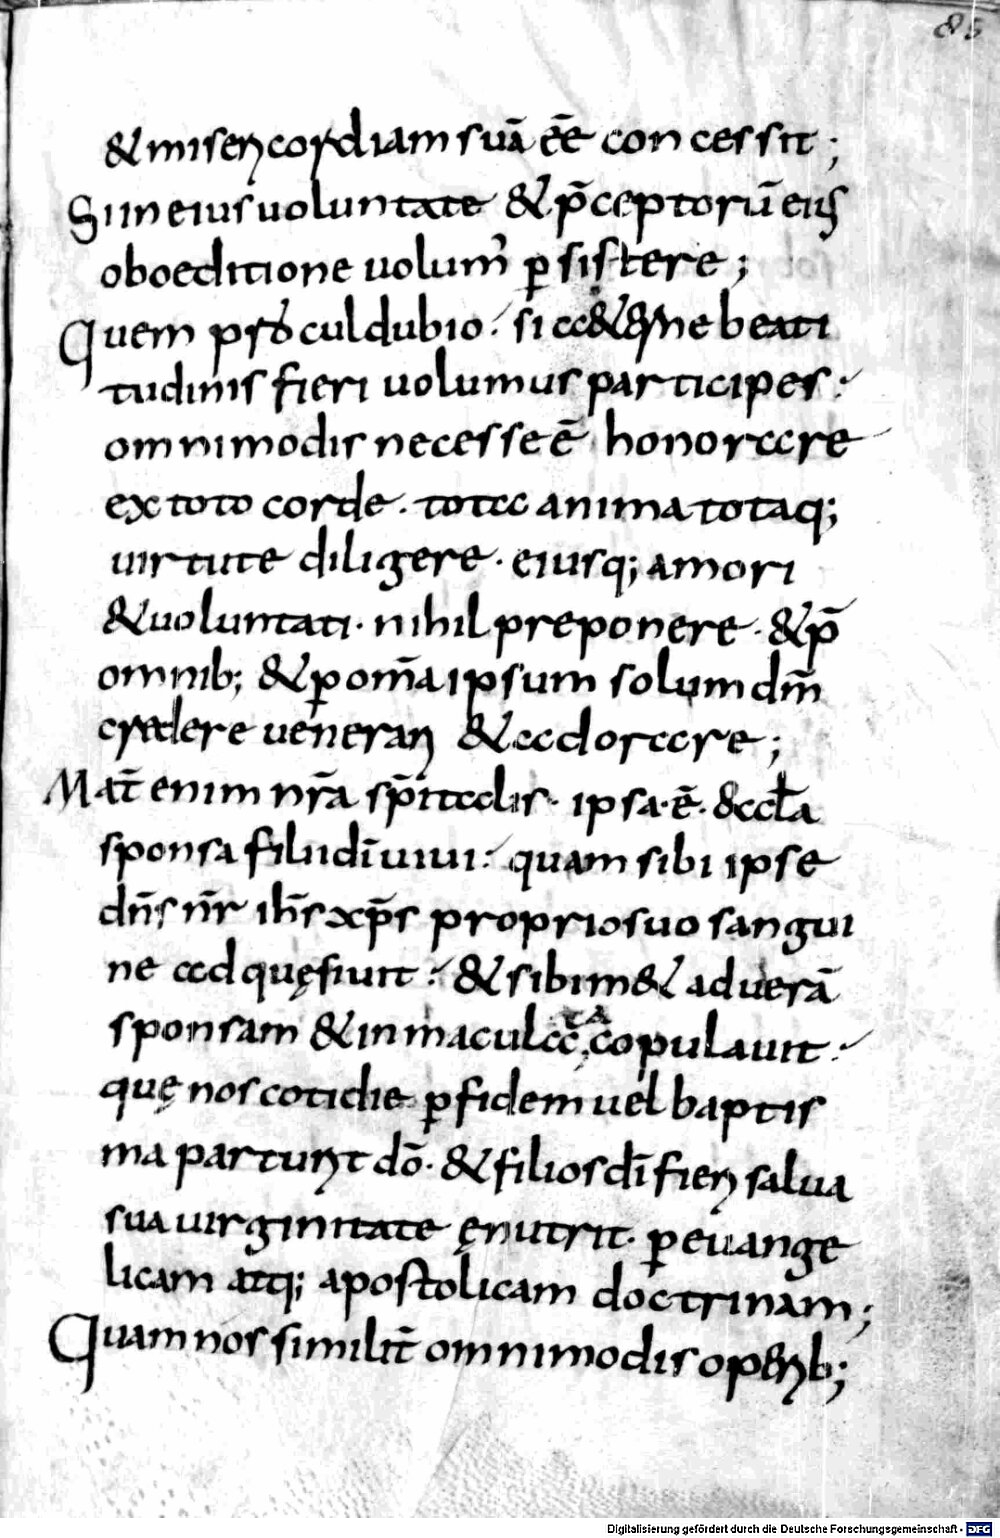 85
&misericordiam suā eē concessit;
Si in eius uoluntate & p̄ceptorū eius
oboeditione uolum᾽ ꝑsistere;
Quem procul dubio. si &erne beati
tudinis fieri uolumus participes.
omnimodis necesse ē honorare
ex toto corde. tota anima totaq;
uirtute diligere. eiusq; amori
&uoluntati. nihil preponere. & p̄
omnib; & ꝑ om̄a ipsum solum dm̄
credere uenerari & adorare;
Mat̄ enim nr̄a sp̄italis. ipsa.ē. &ccl̄a
sponsa filii dī uiui. quam sibi ipse
dn̄s nr̄ ihs̄ xp̄s proprio suo sangui
ne adquęsiuit. & sibim& ad uerā
sponsam & inmaculatā copulauit.
quę nos cotidie ꝑ fidem uel baptis
ma parturit dō. & filios dī fieri salua
sua uirginitate ęnutrit. ꝑ euange
licam atq; apostolicam doctrinam;
Quam nos similit̄ omnimodis operib;
Digitalisierung gefördert durch die Deutsche Forschungsgemeinschaft - DFG